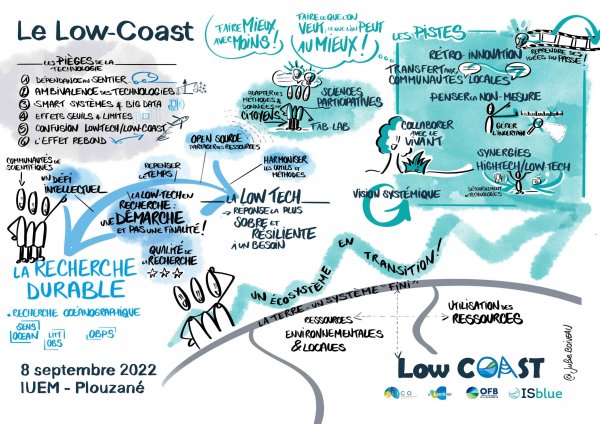 Le Low-Coast
LES PIÈGES DE LA
TECHNOLOGIE
① DÉPENDANCE AU SENTIER
② AMBIVALENCE DES TECHNOLOGIES
③ SMART SYSTÈMES & BIG DATA
④ EFFETS SEUILS & LIMITES
⑤ CONFUSION LOWTECH/LOW-COAST
⑥ L'EFFET REBOND
FAIRE MIEUX
AVEC MOINS!
FAIRE CE QUE L'ON
VEUT, CE QUE L'ON PEUT
AU MIEUX!
ADAPTER LES
MÉTHODES &
DONNÉES AU
CITOYENS
SCIENCES
PARTICIPATIVES
FAB-LAB
LES PISTES
RÉTRO-INNOVATION
REPRENDRE DES
IDÉES DU PASSÉ!
TRANSFERT AUX
COMMUNAUTÉS LOCALES
PENSER LA NON-MESURE
GÉRER
L'INCERTAIN
COLLABORER
AVEC LE
VIVANT
SYNERGIES
HIGHTECH/LOW TECH
DÉTOURNEMENT
DE TECHNOLOGIES
VISION SYSTÉMIQUE
COMMUNAUTÉS DE
SCIENTIFIQUES
UN DÉFI
INTELLECTUEL
REPENSER
LE TEMPS!
OPEN SOURCE
PARTAGER DES RESSOURCES
HARMONISER
LES OUTILS &
MÉTHODES
LA LOW-TECH EN
RECHERCHE:
UNE DÉMARCHE
ET PAS UNE FINALITÉ!
LA LOW TECH
RÉPONSE LA PLUS
SOBRE ET
RÉSILIENTE
À UN BESOIN
QUALITÉ DE
LA RECHERCHE
LA RECHERCHE
DURABLE
• RECHERCHE OCÉANOGRAPHIQUE
SENS
OCEAN
LITT
OBS
OBPS
UN ÉCOSYSTÈME EN TRANSITION!
LA TERRE: UN SYSTÈME "FINI"
RESSOURCES
ENVIRONNEMENTALES
& LOCALES
UTILISATION DES
RESSOURCES
8 septembre 2022
IUEM - Plouzané
Low COAST
OFB
ISblue
@Julie Boiveau